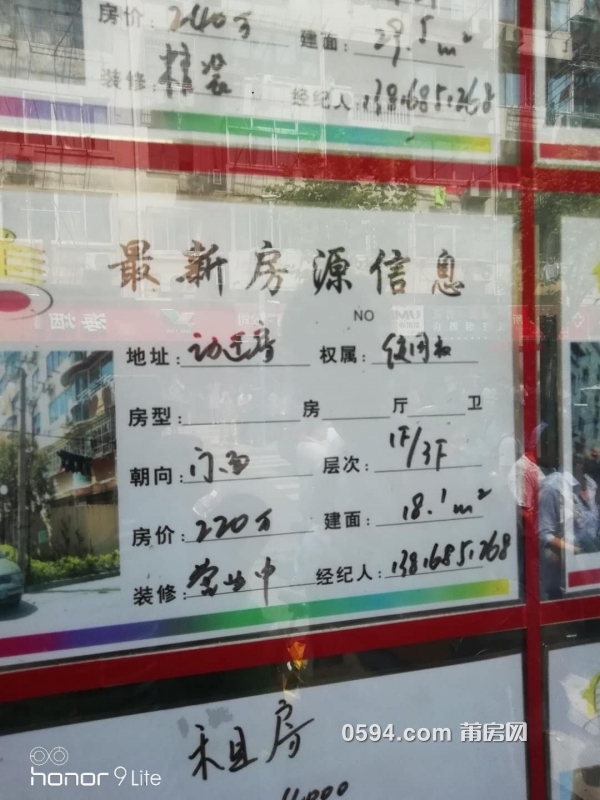 房价: 240万 建面: 29.5m²
装修: 精装 经纪人: 13816851268
最新房源信息
NO
地址: 动迁房 权属: 使用权
房型: 房 厅 卫
朝向: 门面 层次: 1F/3F
房价: 220万 建面: 18.1m²
装修: 营业中 经纪人: 13816851268
租房
0594.com 莆房网
honor 9 Lite